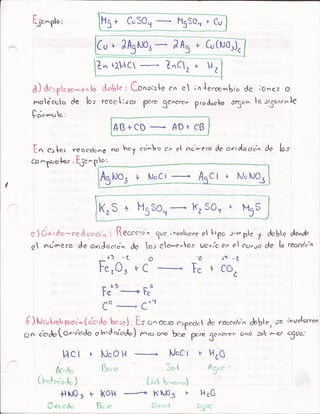 Ejemplo:
Mg + CuSO₄ → MgSO₄ + Cu
Cu + 2AgNO₃ → 2Ag + Cu(NO₃)₂
Zn + 2HCl → ZnCl₂ + H₂
d) desplazamiento doble: Consiste en el intercambio de iones o
molécula de los reactivos para generar producto según la siguiente
fórmula:
AB + CD → AD + CB
En estas reacciones no hay cambio en el número de oxidación de los
compuestos. Ejemplo:
AgNO₃ + NaCl → AgCl + NaNO₃
K₂S + MgSO₄ → K₂SO₄ + MgS
e) Oxido-reducción: Reacción que involucra el tipo simple y doble donde
el número de oxidación de los elementos varía en el curso de la reacción
+3 -2 0 0 +4 -2
Fe₂O₃ + C → Fe + CO₂
Fe⁺³ → Fe⁰
C⁰ → C⁺⁴
f) Neutralización (ácido base): Es un caso especial de reacción doble, se involucran
un ácido (oxácido o hidrácido) mas una base para generar una sal mas agua:
HCl + NaOH → NaCl + H₂O
Ácido Base Sal Agua
(hidrácido)
HNO₃ + KOH → KNO₃ + H₂O
Oxácido Base Agua